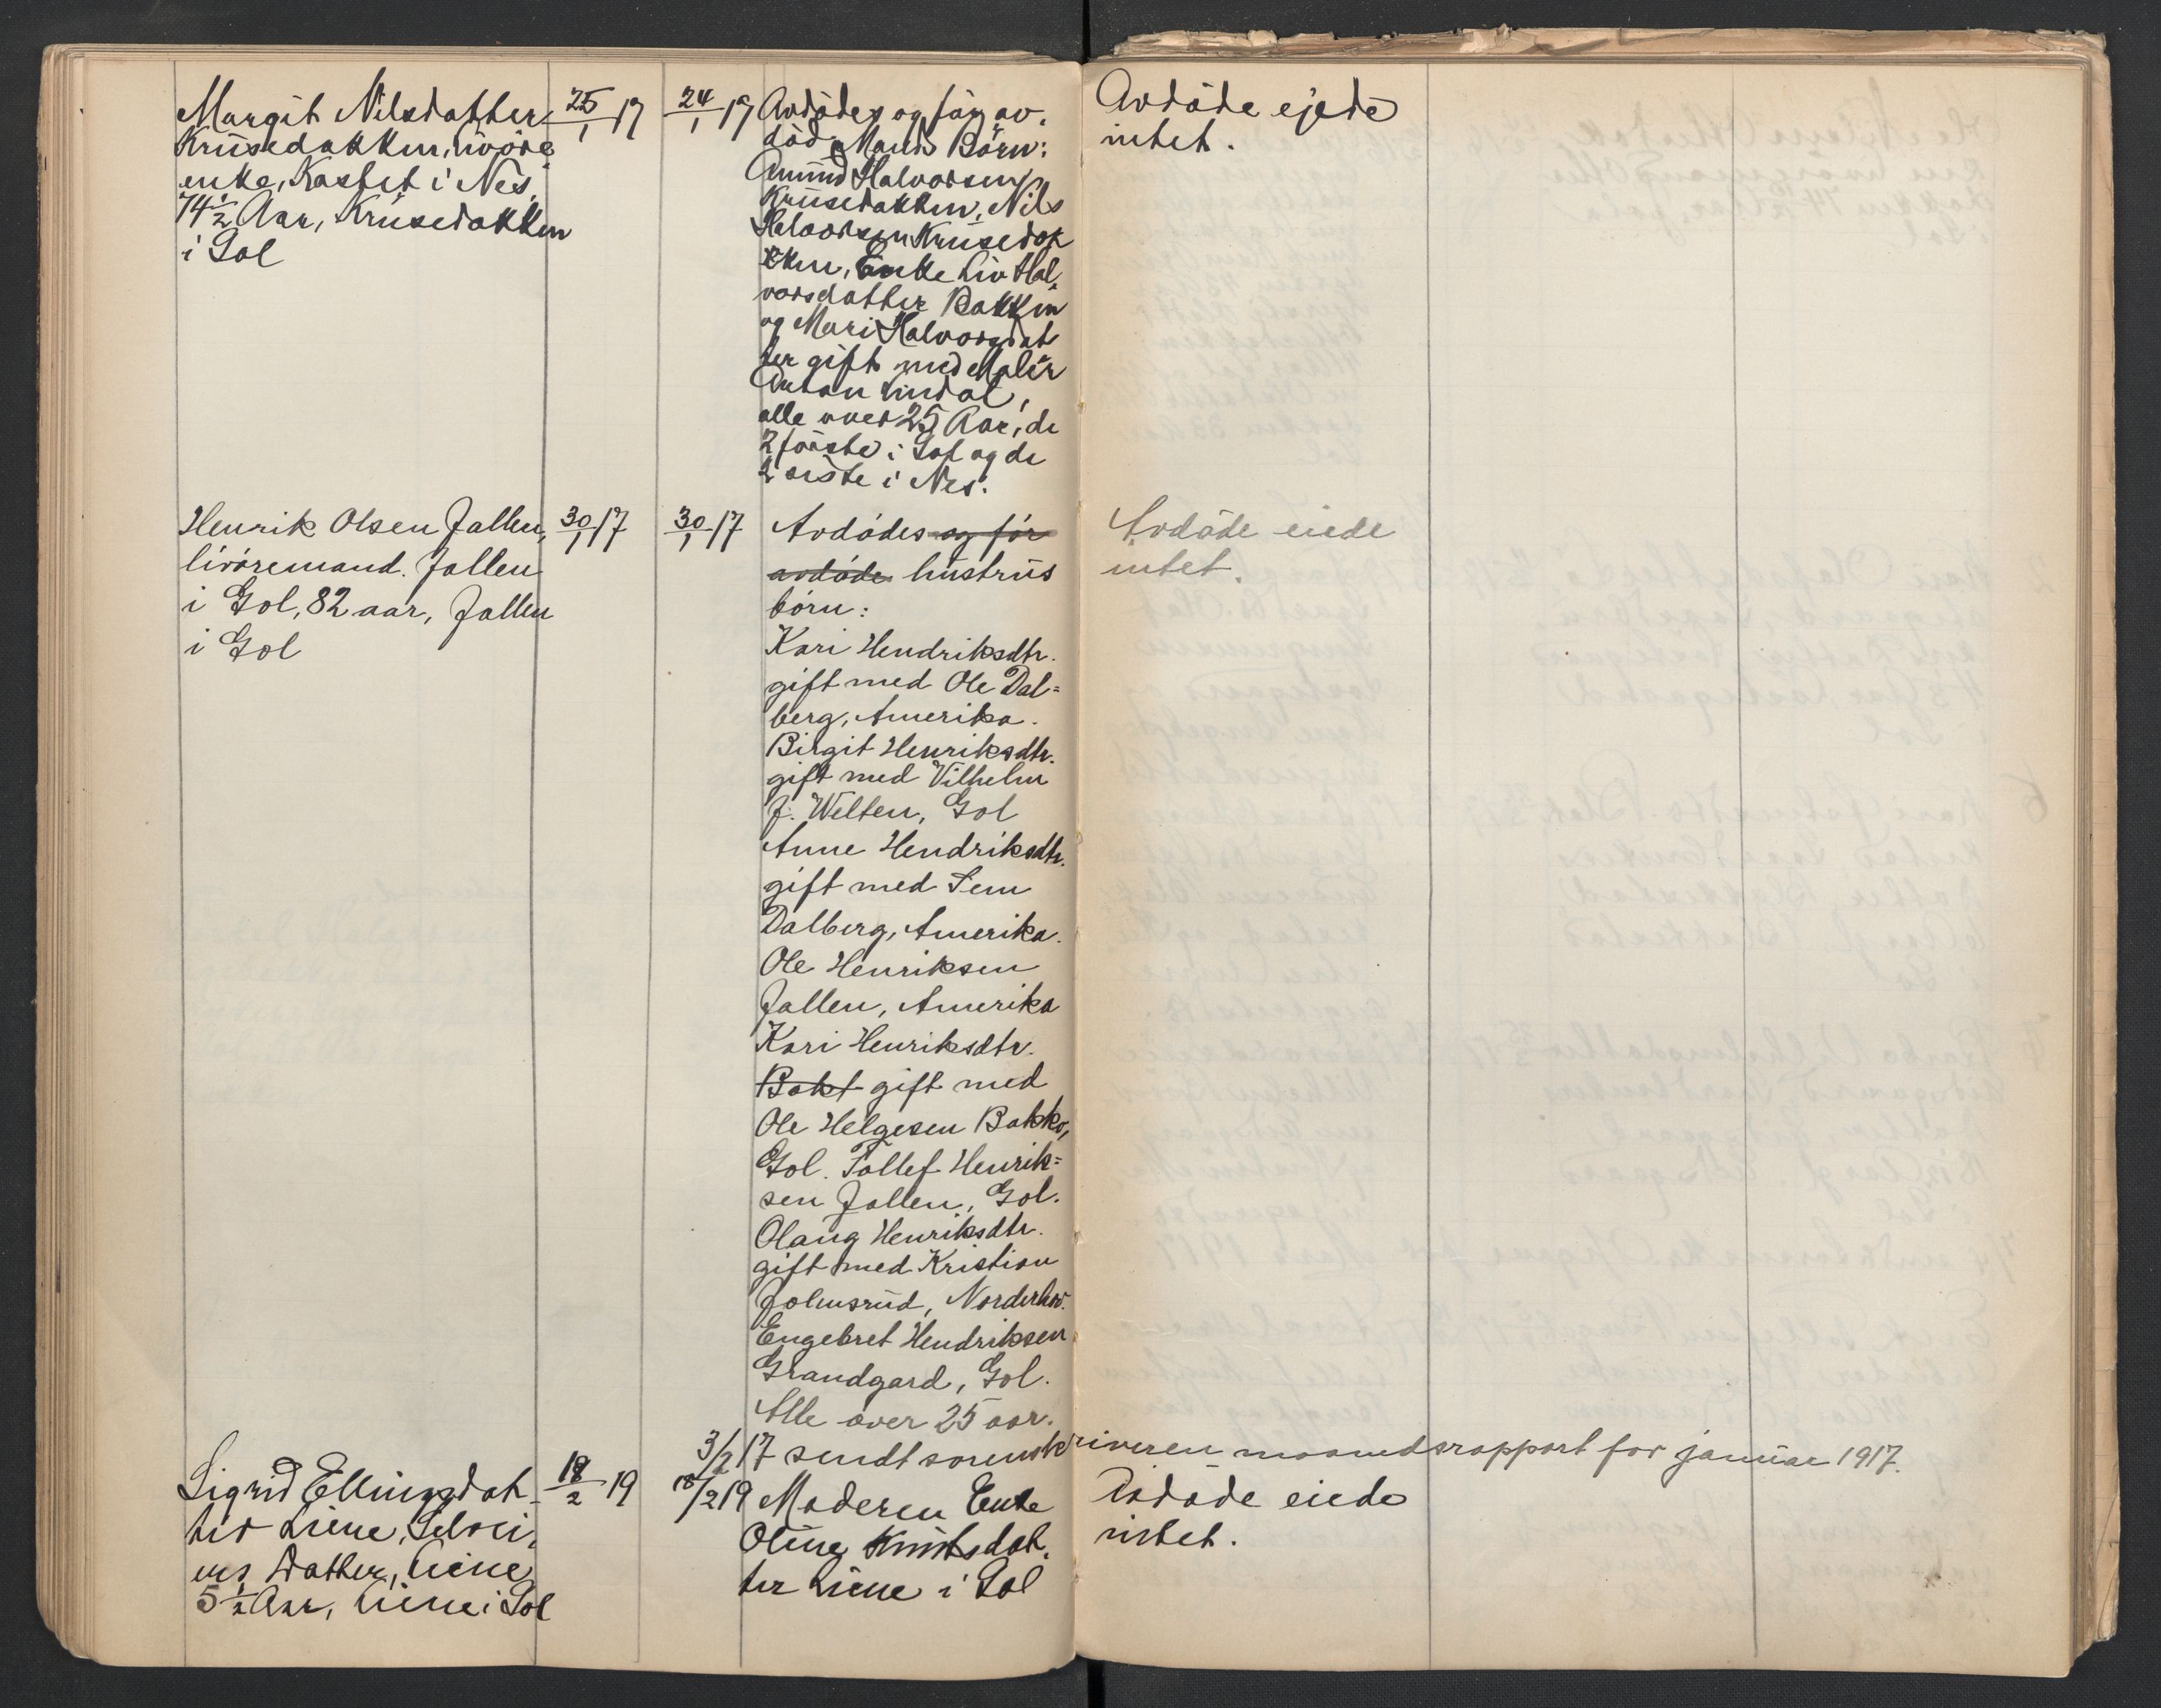 Margit Nilsdatter
Krüsedokken, livøre
enke, Kastet i Nes,
74 1/2 Aar, Krüsedokken
i Gol
25/1 17
24/1 17
Avdødes og før av-
død Mands Børn:
Amund Halvorsen
Krüsedokken, Nils
Halvorsen Krüsedok
ken, Enke Liv Hal-
vorsdatter Bakken
og Mari Halvorsdat
ter gift med Maler
Anton Lindal,
alle over 25 Aar, de
2 første i Gol og de
2 siste i Nes.
Avdøde ejede
intet.
Henrik Olsen Jallen,
livøremand. Jallen
i Gol, 82 aar, Jallen
i Gol
30/1 17
30/1 17
Avdødes og før
avdøde hüstrüs
børn:
Kari Hendriksdtr.
gift med Ole Dal=
berg, Amerika.
Birgit Henriksdtr.
gift med Vilhelm
J. Welten, Gol
Anne Hendriksdtr.
gift med Sem
Dalberg, Amerika.
Ole Henriksen
Jallen, Amerika
Kari Henriksdtr.
Bakk gift med
Ole Helgesen Bakko,
Gol. Tollef Henrik=
sen Jallen, Gol.
Olaug Henriksdtr.
gift med Kristian
Jolmsrüd, Norderhov.
Engebret Hendriksen
Grandgard, Gol.
Alle over 25 aar.
Avdøde eiede
intet.
3/2 17 sendt sorenskriveren maanedsrapport for janüar 1917.
Sigrid Ellingsdat-
ter Liene, Selvei-
ers Datter, Liene
5 1/2 Aar, Liene i Gol
18/2 19
18/2 19
Moderen Enke
Oline Knütsdat-
ter Liene i Gol
Avdøde eiede
intet.